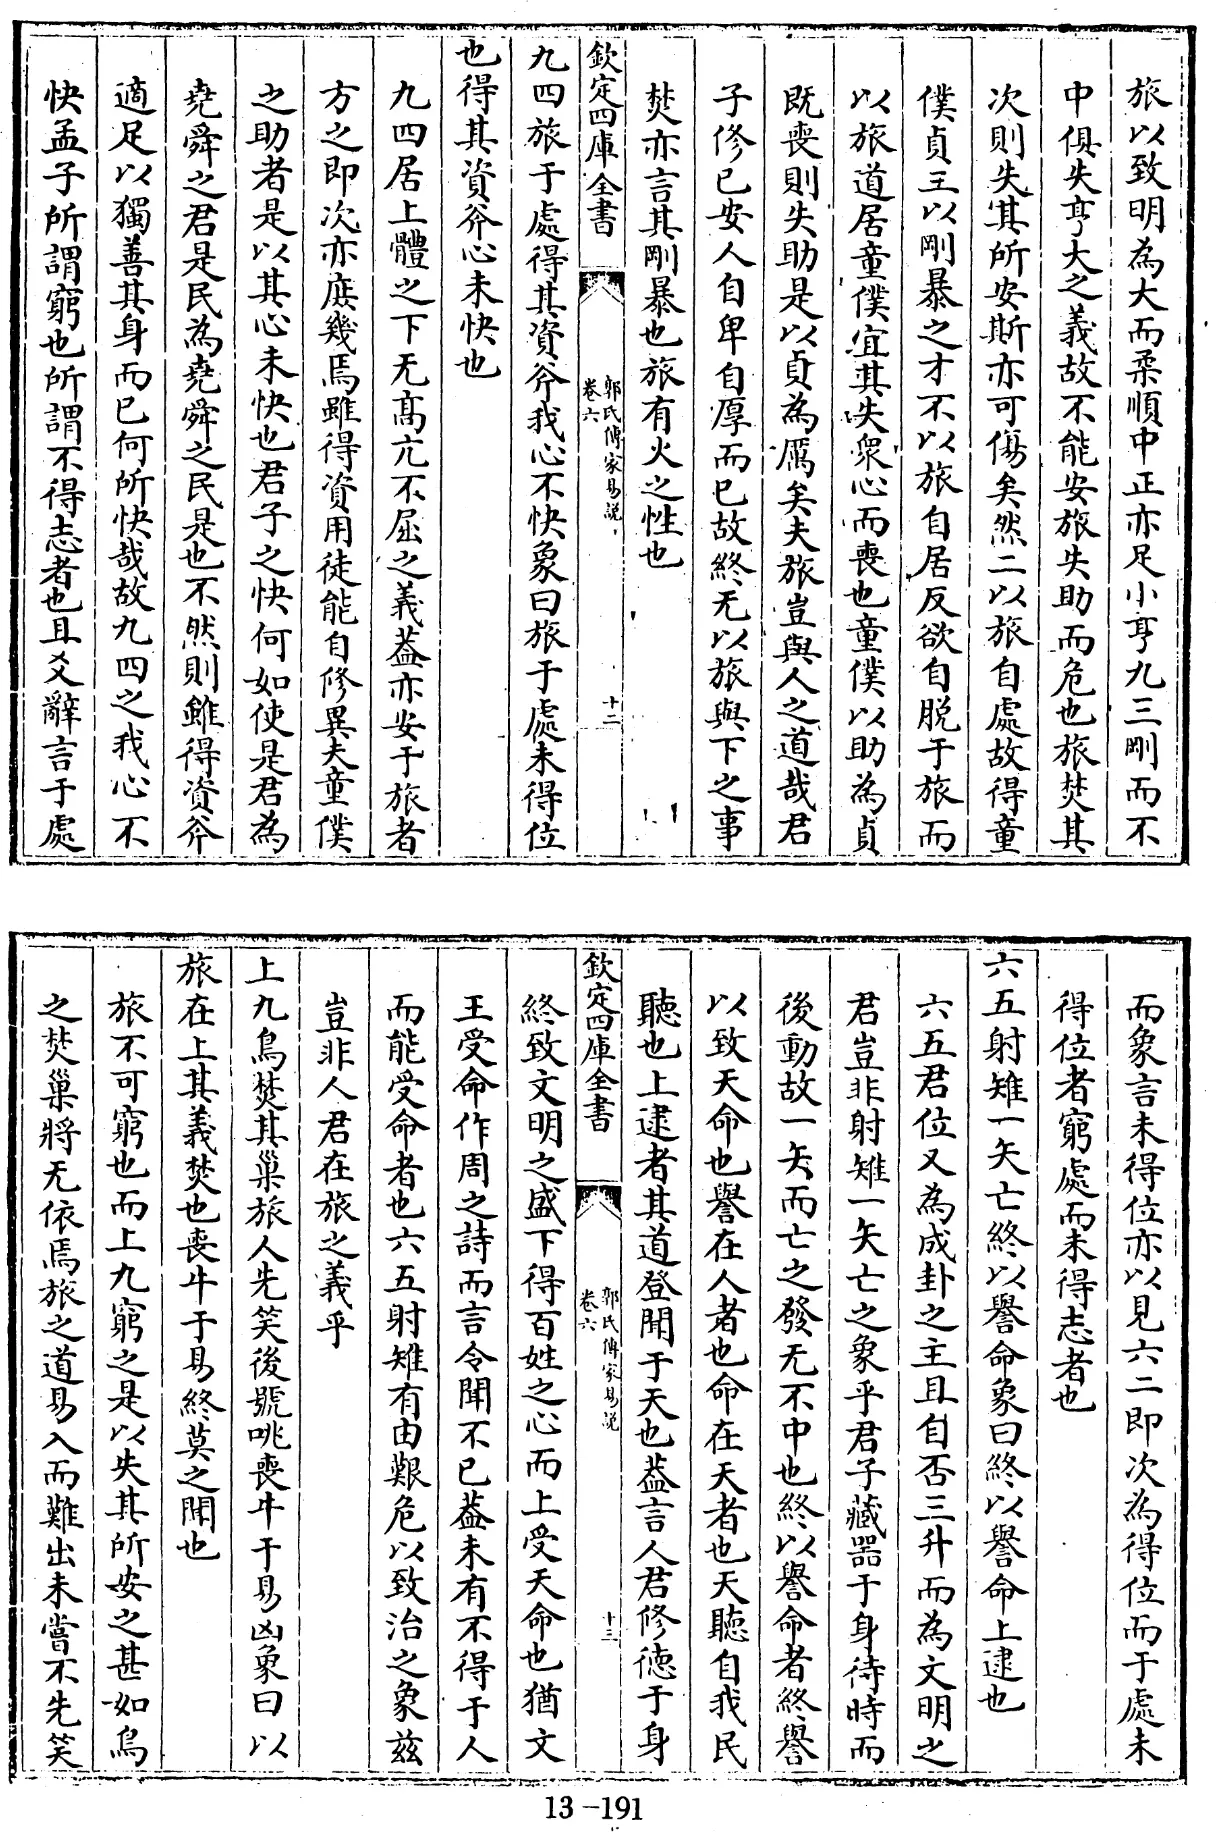 旅以致明為大而柔順中正亦足小亨九三剛而不
中俱失亨大之義故不能安旅失助而危也旅焚其
次則失其所安斯亦可傷矣然二以旅自處故得童
僕貞三以剛暴之才不以旅自居反欲自脱于旅而
以旅道居童僕宜其失衆心而喪也童僕以助為貞
既喪則失助是以貞為厲矣夫旅豈與人之道哉君
子修已安人自卑自厚而已故終无以旅與下之事
焚亦言其剛暴也旅有火之性也
欽定四庫全書
郭氏傳家易說
卷六
十二
九四旅于處得其資斧我心不快象曰旅于處未得位
也得其資斧心未快也
九四居上體之下无高亢不屈之義葢亦安于旅者
方之即次亦庶幾焉雖得資用徒能自修異夫童僕
之助者是以其心未快也君子之快何如使是君為
堯舜之君是民為堯舜之民是也不然則雖得資斧
適足以獨善其身而已何所快哉故九四之我心不
快孟子所謂窮也所謂不得志者也且爻辭言于處
而象言未得位亦以見六二即次為得位而于處未
得位者窮處而未得志者也
六五射雉一矢亡終以譽命象曰終以譽命上逮也
六五君位又為成卦之主且自否三升而為文明之
君豈非射雉一矢亡之象乎君子藏器于身待時而
後動故一矢而亡之發无不中也終以譽命者終譽
以致天命也譽在人者也命在天者也天聽自我民
聽也上逮者其道登聞于天也葢言人君修德于身
欽定四庫全書
郭氏傳家易說
卷六
十三
終致文明之盛下得百姓之心而上受天命也猶文
王受命作周之詩而言令聞不已葢未有不得于人
而能受命者也六五射雉有由艱危以致治之象兹
豈非人君在旅之義乎
上九鳥焚其巢旅人先笑後號咷喪牛于易凶象曰以
旅在上其義焚也喪牛于易終莫之聞也
旅不可窮也而上九窮之是以失其所安之甚如鳥
之焚巢將无依焉旅之道易入而難出未嘗不先笑
13-191